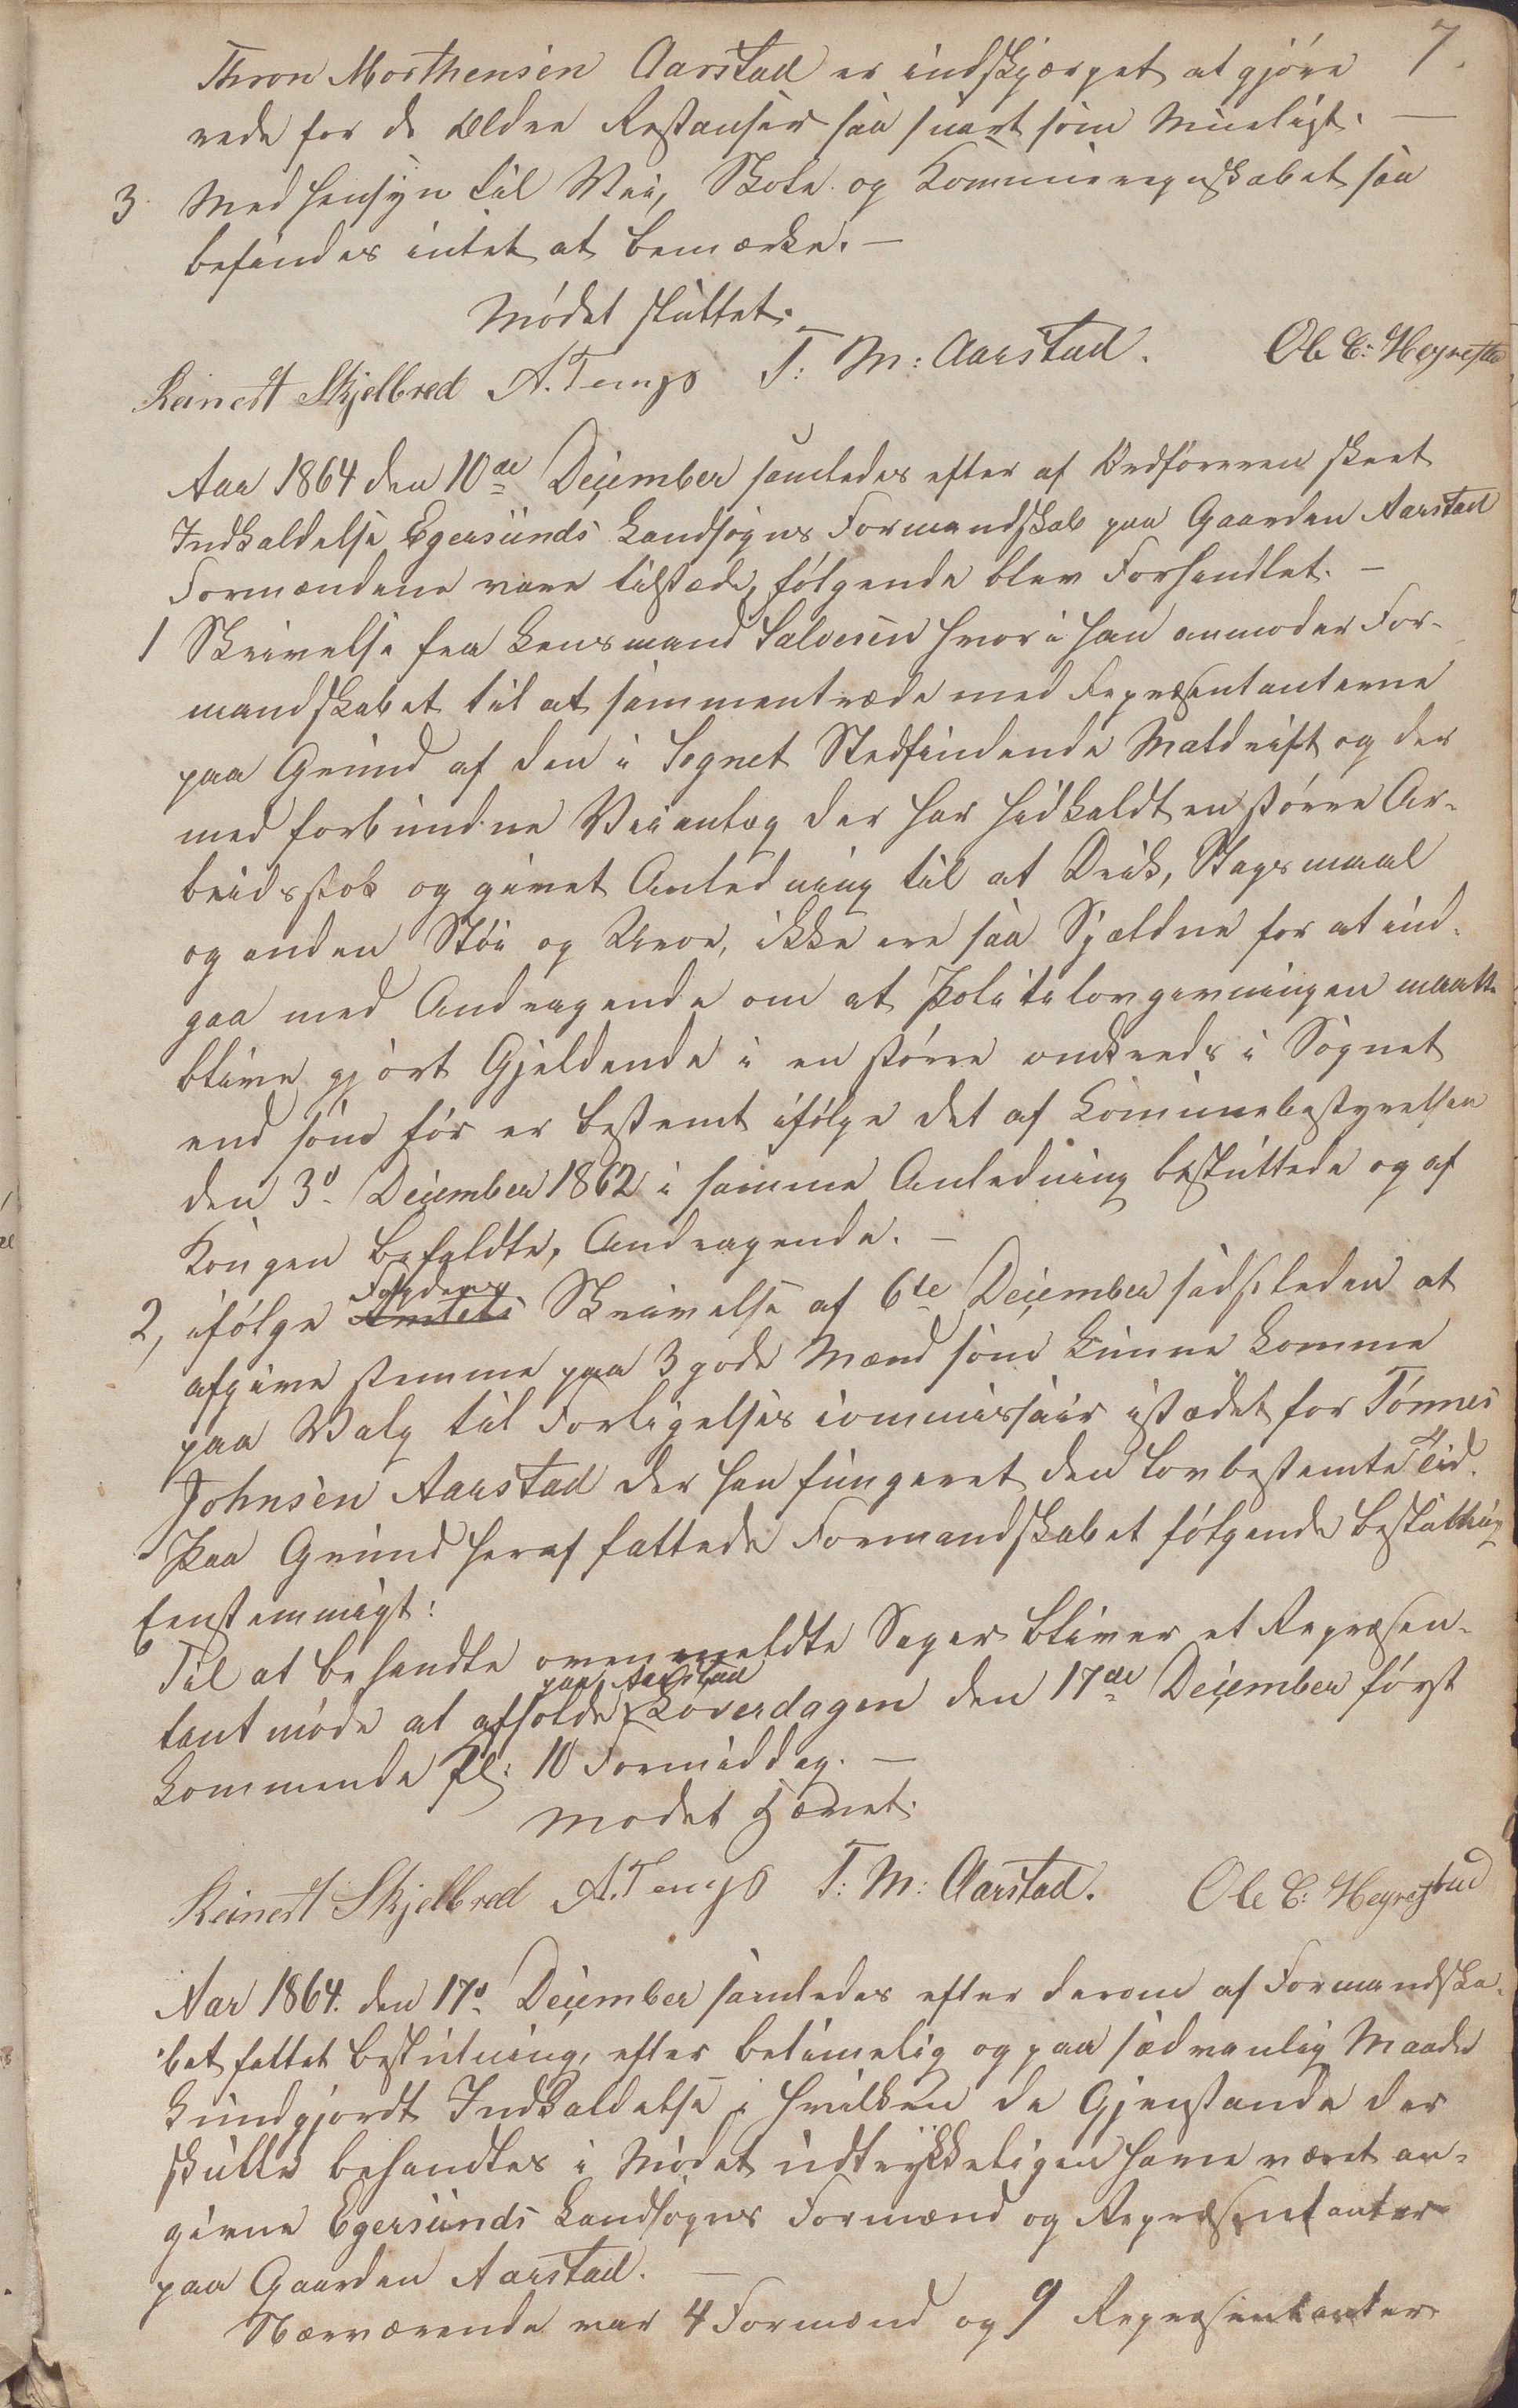 7.
Thron Morthensen Aarstad er indskjærpet at gjøre
rede for de Ældre Restanser saa snart som Mueligt. —
3. Med Hensyn til Vei, Skole og Kommuneregnskabet saa
befindes intet at bemærke. —
Mødet sluttet.
Reinert Skjelbred A. Tengs T: M: Aarstad. Ole C: Hegrestad
Aar 1864 den 10de December samledes efter af Ordføreren skeet
Indkaldelse Egersunds Landsogns Formandskab paa Gaarden Aarstad
Formændene vare tilstæde, følgende blev Forhandlet. —
1 Skrivelse fra Lensmand Salvesen hvori han anmoder For-
mandskabet til at sammentræde med Repræsentanterne
paa Grund af den i Sognet Stedfindende Maldrift og der
med forbundne Veianlæg der har hidkaldt en større Ar-
beidsstok og givet Anledning til at Drik, Slagsmaal
og anden Støi og Uroe, ikke ere saa Sjældne for at ind-
gaa med Andragende om at Politilovgivningen maatte
blive gjort Gjeldende i en større omkreds i Sognet
end som før er bestemt ifølge det af Comunebestyrelsen
den 3d December 1862 i samme Anledning besluttede og af
Kongen befaldte, Andragende. —
2, ifølge Amtets Fogdens Skrivelse af 6te December sidstleden at
afgive stemme paa 3 gode Mænd som kunne komme
paa Valg til Forligelses commissair istædet for Tønnes
Johnsen Aarstad der han fungeret den lovbestemte Tid.
Paa Grund heraf fattede Formandskabet følgende beslutning
Eenstemmigt:
Til at behandle ovenmeldte Sager bliver et Repræsen-
tant møde at afholde paa Aarstad Løverdagen den 17de December først
kommende Kl: 10 Formiddag. —
Mødet Hævet.
Reinert Skjelbred A. Tengs T: M: Aarstad. Ole C: Hegrestad
Aar 1864. den 17d December samledes efter derom af Formandska-
bet fattet beslutning, efter betimelig og paa sædvanlig Maade
kundgjordt Indkaldelse i hvilken de Gjenstande der
skulle behandles i Mødet udtrykkeligen have været an-
givne Egersunds Landsogns Formænd og Repræsentanter
paa Gaarden Aarstad. —
Nærværende var 4 Formænd og 9 Repræsentanter